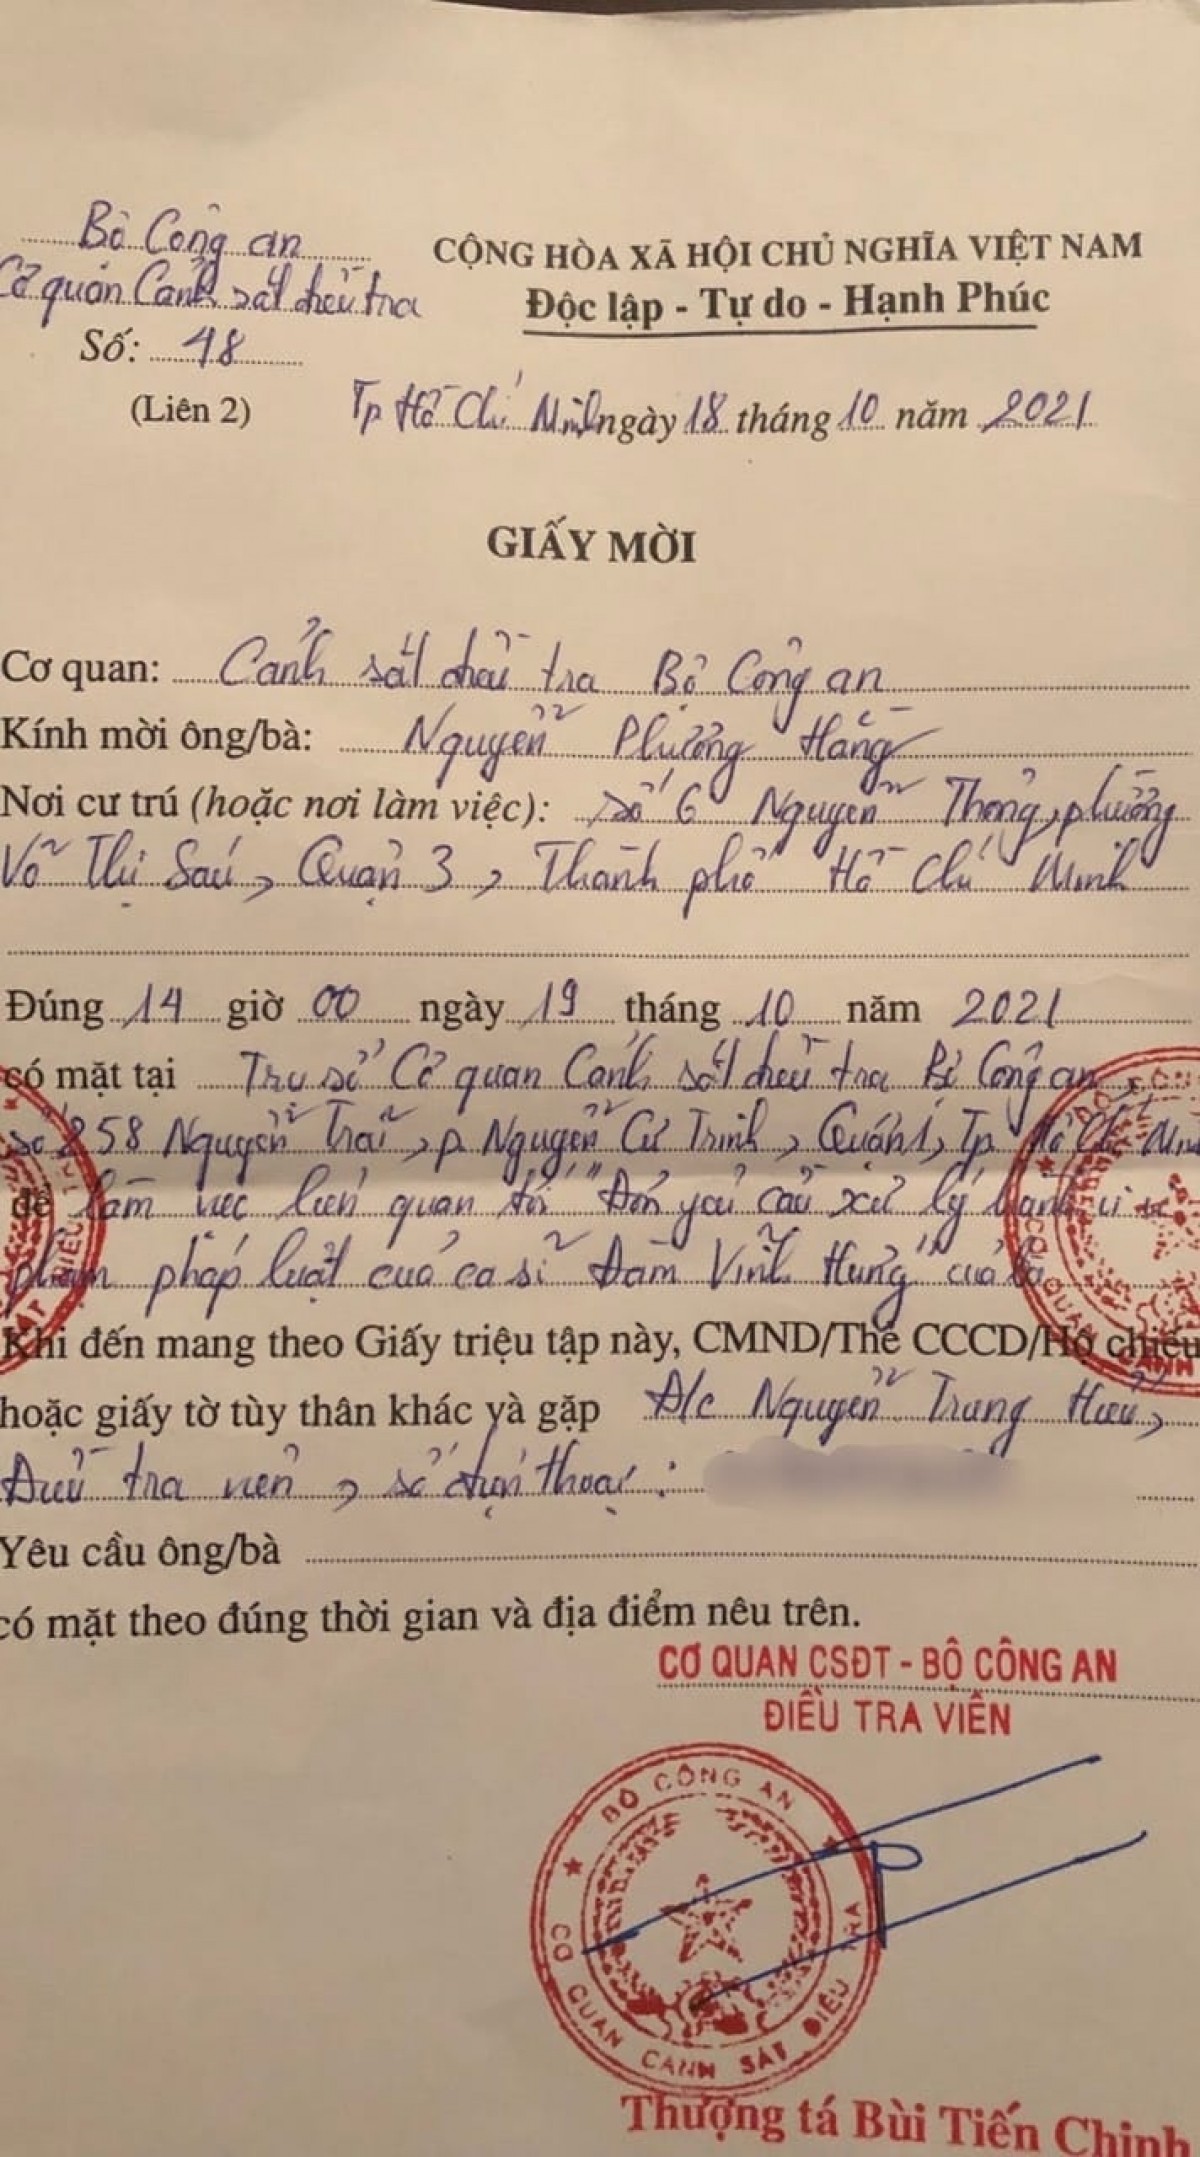 Bộ Công an
Cơ quan Cảnh sát điều tra
CỘNG HÒA XÃ HỘI CHỦ NGHĨA VIỆT NAM
Độc lập - Tự do - Hạnh Phúc
Số: 48
(Liên 2)
Tp Hồ Chí Minh ngày 18 tháng 10 năm 2021
GIẤY MỜI
Cơ quan: Cảnh sát điều tra Bộ Công an
Kính mời ông/bà: Nguyễn Phương Hằng
Nơi cư trú (hoặc nơi làm việc): số 6 Nguyễn Thông, phường
Võ Thị Sáu, Quận 3, Thành phố Hồ Chí Minh
Đúng 14 giờ 00 ngày 19 tháng 10 năm 2021
có mặt tại Trụ sở Cơ quan Cảnh sát điều tra Bộ Công an,
số 258 Nguyễn Trãi, p. Nguyễn Cư Trinh, Quận 1, Tp Hồ Chí Minh
để làm việc liên quan tới "Đơn yêu cầu xử lý hành vi vi
phạm pháp luật của ca sĩ Đàm Vĩnh Hưng" của bà
Khi đến mang theo Giấy triệu tập này, CMND/Thẻ CCCD/Hộ chiếu
hoặc giấy tờ tùy thân khác và gặp Đ/c Nguyễn Trung Hiếu,
Điều tra viên, số điện thoại:
Yêu cầu ông/bà
có mặt theo đúng thời gian và địa điểm nêu trên.
CƠ QUAN CSĐT - BỘ CÔNG AN
ĐIỀU TRA VIÊN
BỘ CÔNG AN
CƠ QUAN CẢNH SÁT ĐIỀU TRA
Thượng tá Bùi Tiến Chinh